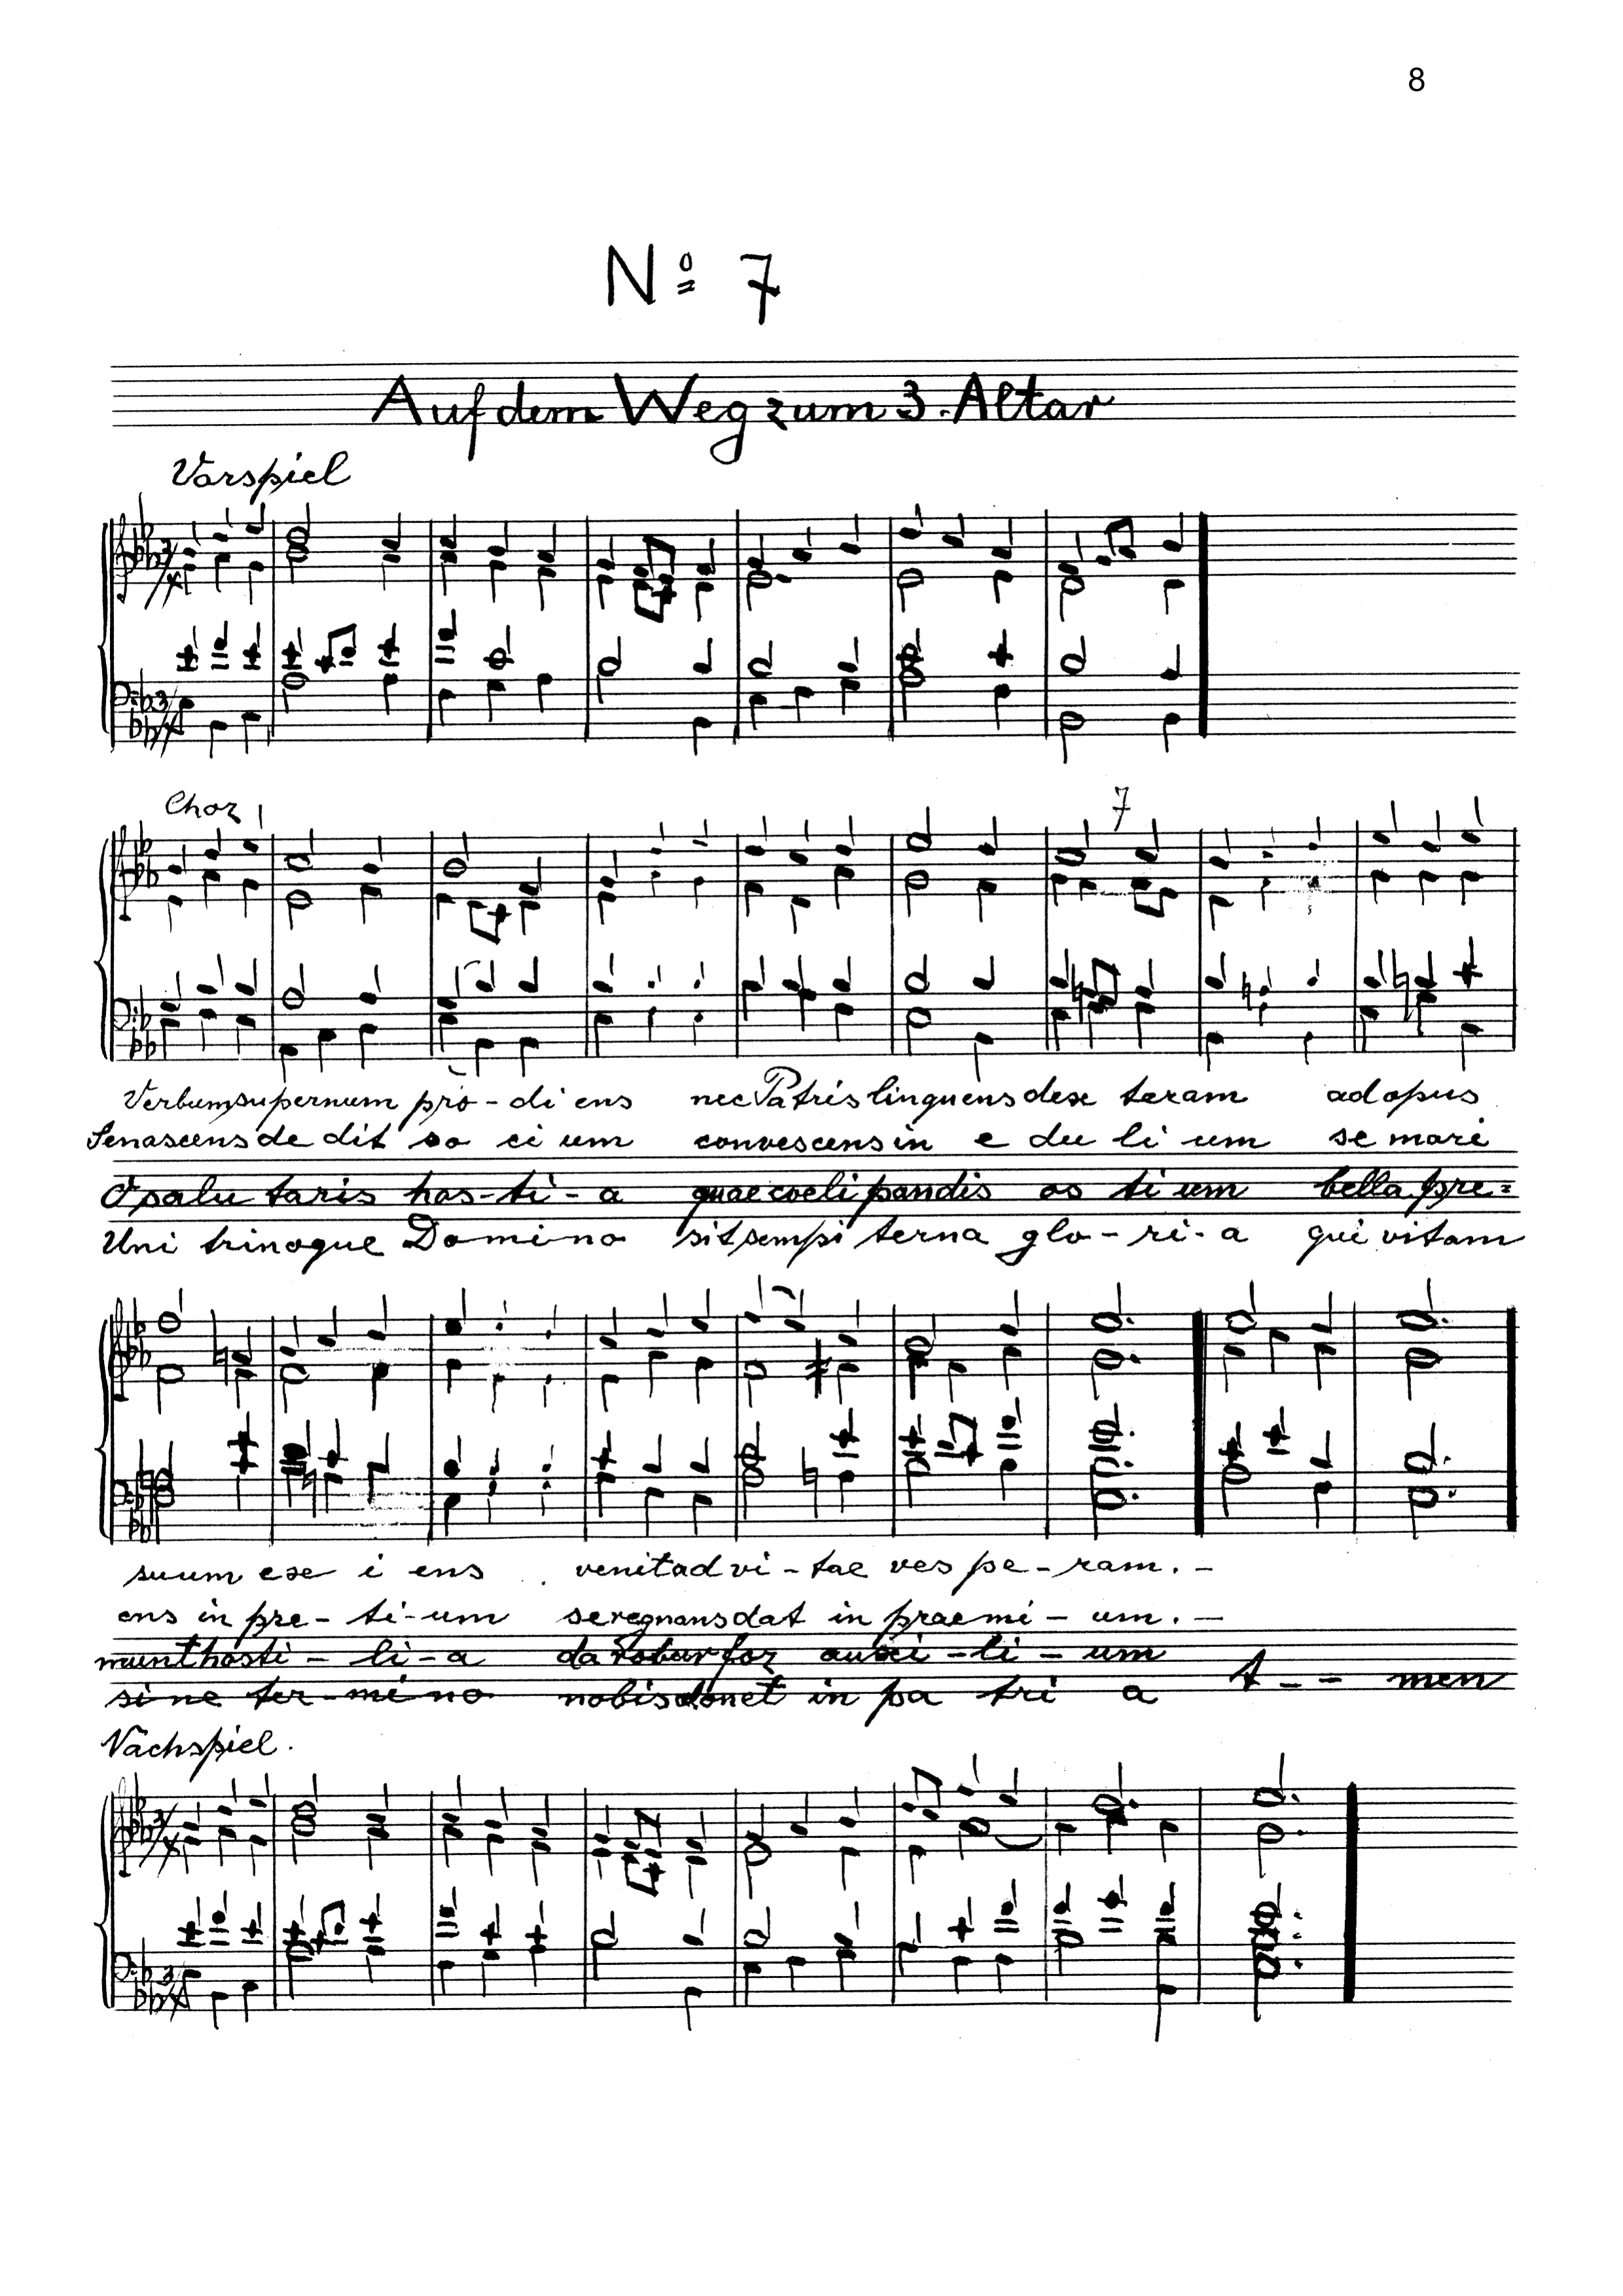 8
Nº 7
Auf dem Weg zum 3. Altar
Vorspiel
Chor
7
Verbum supernum pro - di ens nec Patris linquens dexteram ad opus
Se nascens de dit so ci um convescens in e du li um se mori
O salu taris hos - ti - a quae coeli pandis os ti um bella pre =
Uni trinoque Domino sit sempi terna glo - ri - a qui vitam
suum exe i ens venit ad vi - tae ves pe - ram. -
ens in pre - ti - um se regnans dat in praemi - um. -
munt hosti - li - a da robur fer auxi - li - um
si ne ter - mi no nobis donet in pa tri a A - - men
Nachspiel.